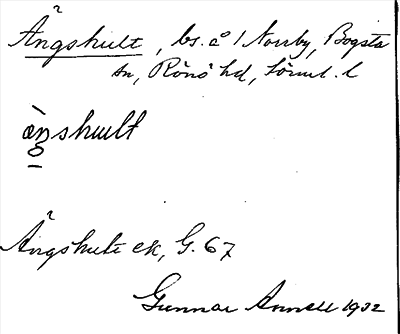 Ängshult, bs. å 1 Norrby, Bogsta
sn, Rönö hd, Sörml. l
ängshult
Ängshult ek, G. 67
Gunnar Annell 1932